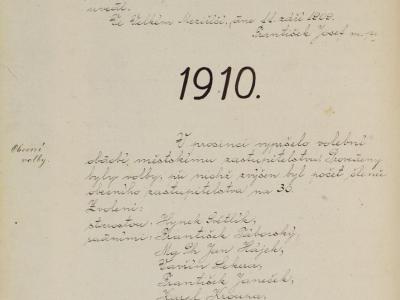 uvedl.
Ve Velkém Meziříčí, dne 11. září 1909.
František Josef m. p.
1910.
Obecní
volby.
V prosinci vypršelo volební
období městskému zastupitelstvu. Provedeny
byly volby, při nichž zvýšen byl počet členů
obecního zastupitelstva na 30.
Zvoleni:
starostou: Hynek Světlík,
radními: František Táborský,
Mg Ph Jan Hájek,
František Janeček,
Karel